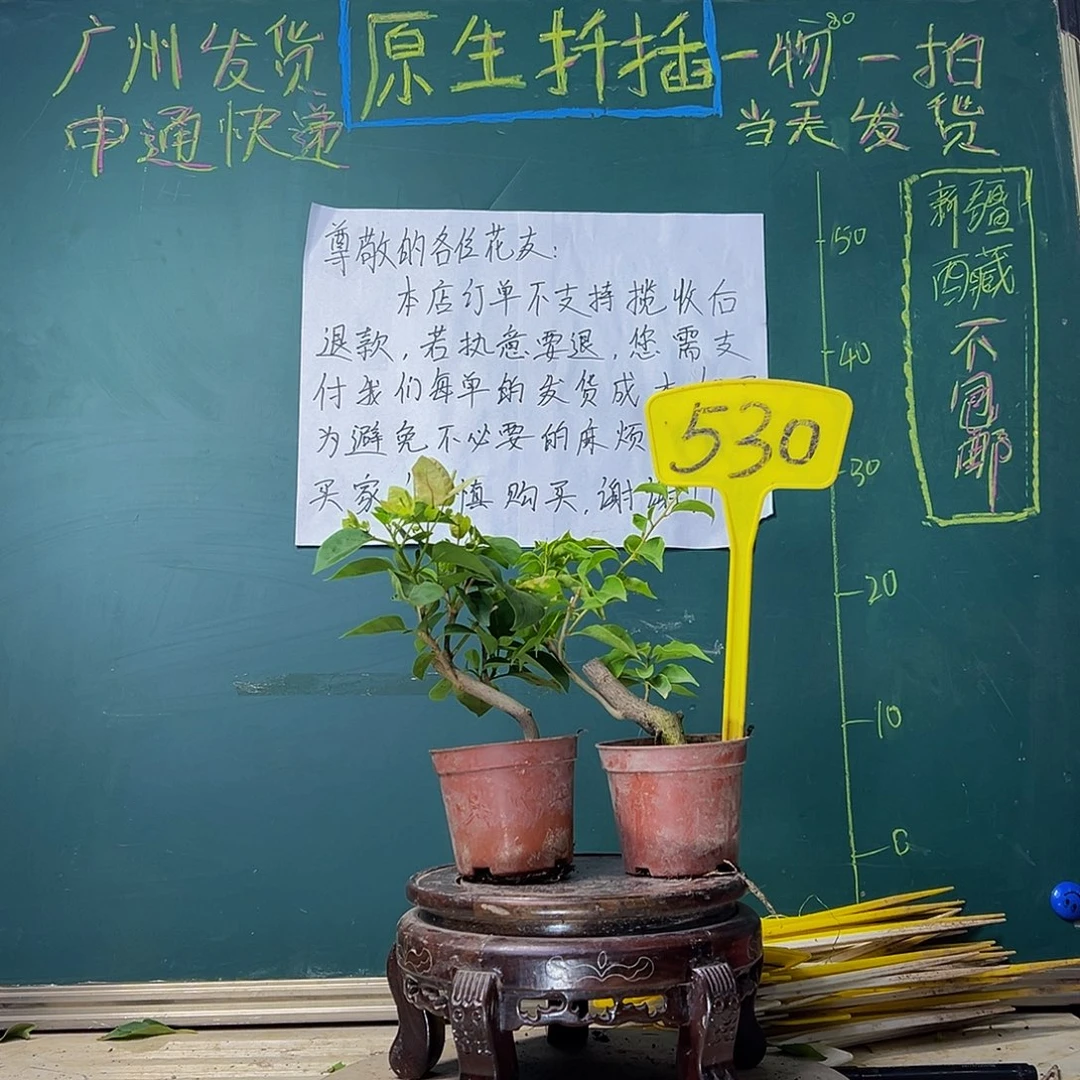 广州发货
申通快递
原生扦插
一物一拍
当天发货
80
50
40
30
20
10
0
新疆
西藏
不包邮
尊敬的各位花友:
本店订单不支持揽收后
退款,若执意要退,您需支
付我们每单的发货成本
为避免不必要的麻烦
买家 慎购买,谢谢!!
530